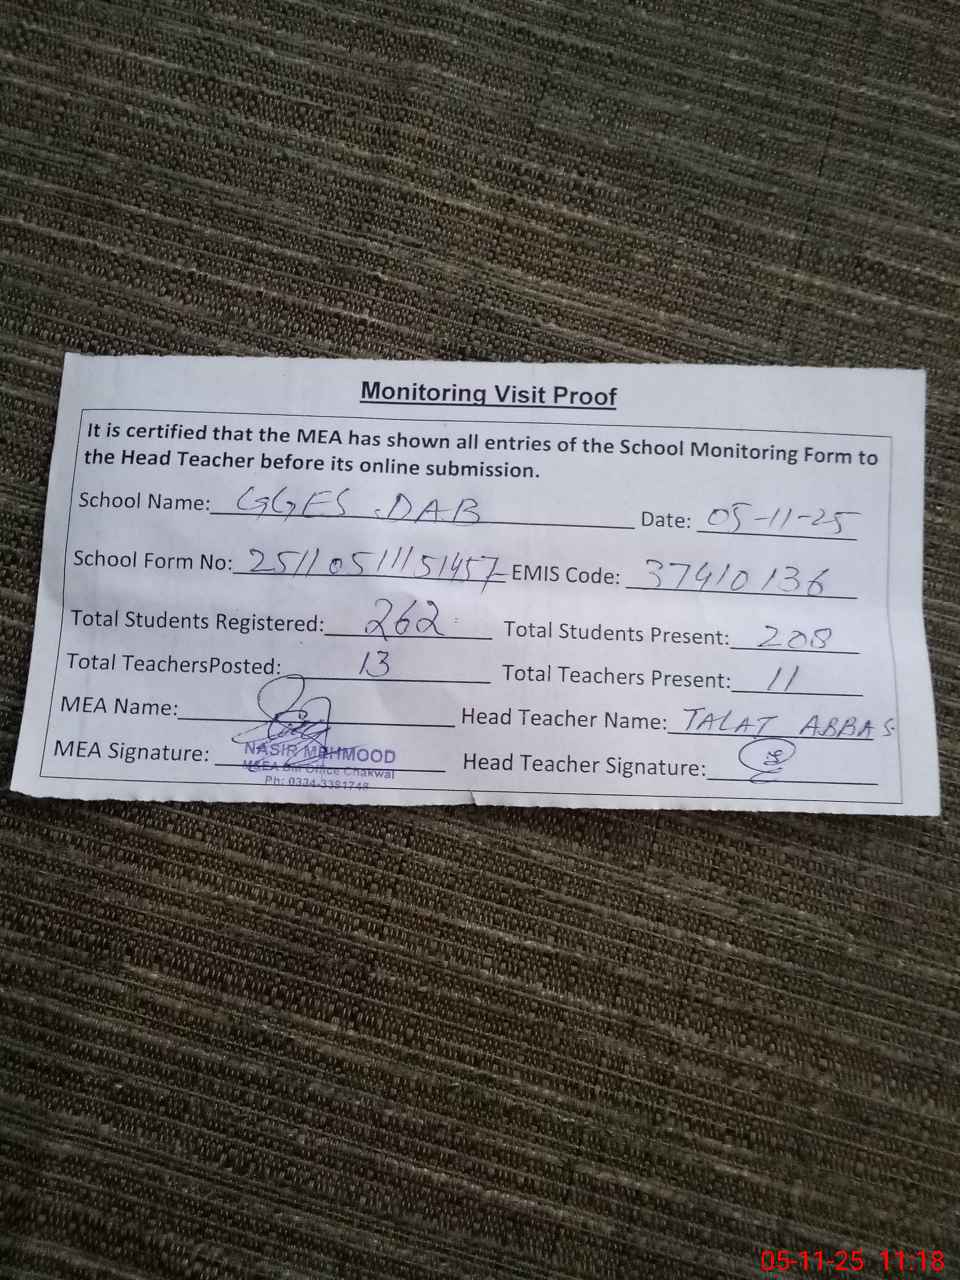 Monitoring Visit Proof
It is certified that the MEA has shown all entries of the School Monitoring Form to
the Head Teacher before its online submission.
School Name: GGES DAB Date: 05-11-25
School Form No: 25110511151457 EMIS Code: 37410136
Total Students Registered: 262 Total Students Present: 208
Total TeachersPosted: 13 Total Teachers Present: 11
MEA Name: Head Teacher Name: TALAT ABBAS
MEA Signature: Head Teacher Signature:
NASIR MEHMOOD
Office Chakwal
Ph: 0334-3381748
05-11-25 11:18